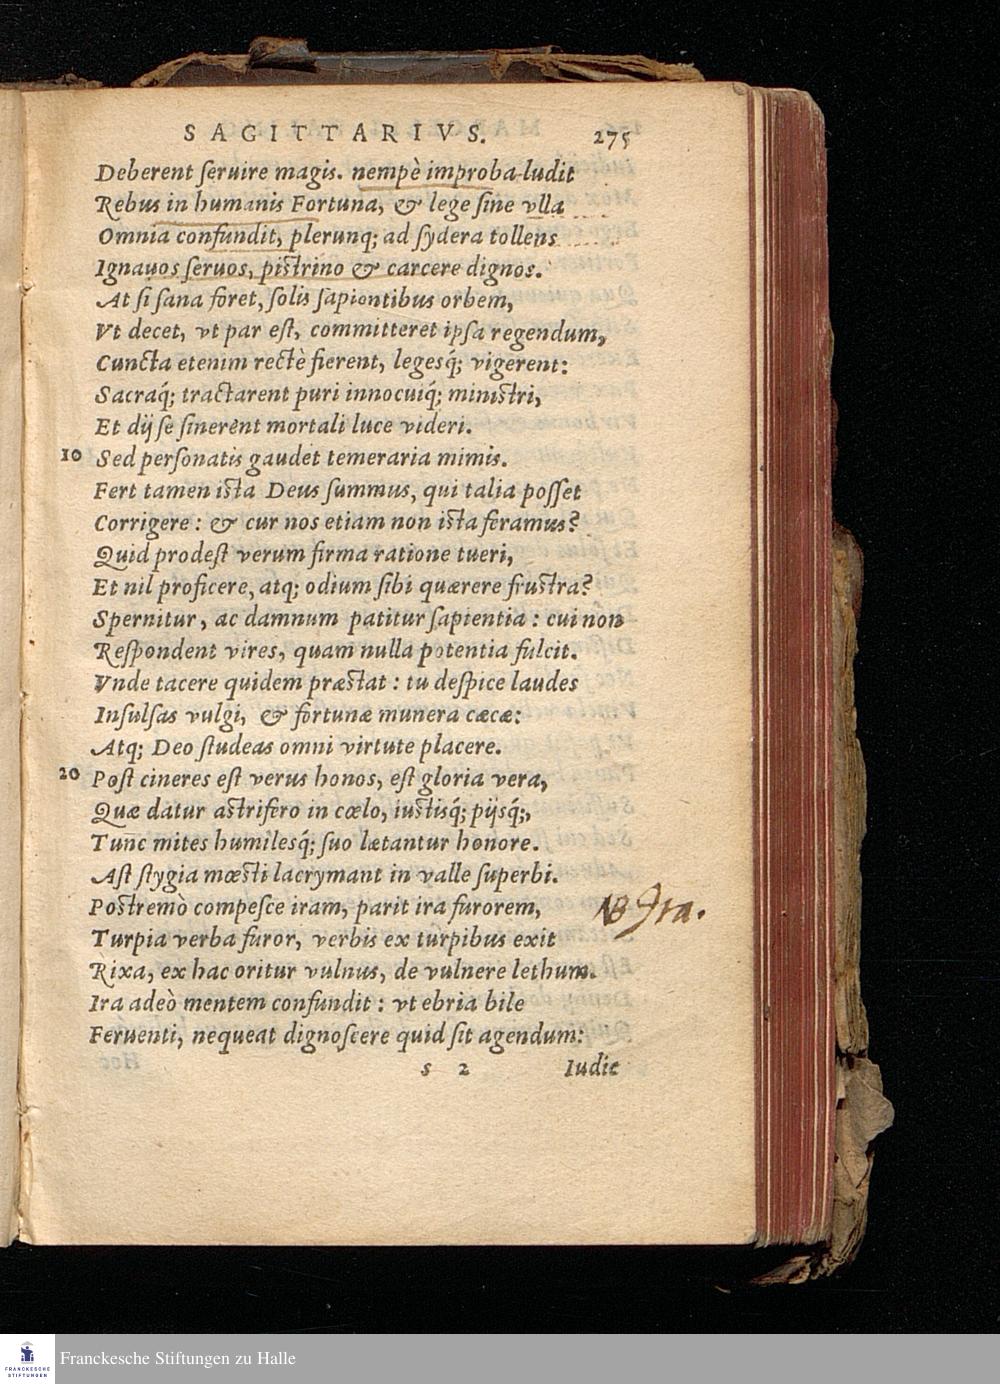 SAGITTARIVS. 275
Deberent ſeruire magis. nempè improba ludit
Rebus in humanis Fortuna, & lege ſine vlla
Omnia confundit, plerunq; ad ſydera tollens
Ignauos ſeruos, piſtrino & carcere dignos.
At ſi ſana foret, ſolis ſapientibus orbem,
Vt decet, vt par eſt, committeret ipſa regendum,
Cuncta etenim rectè fierent, legesq́; vigerent:
Sacraq́; tractarent puri innocuiq́; miniſtri,
Et dij ſe ſinerent mortali luce videri.
10 Sed perſonatis gaudet temeraria mimis.
Fert tamen iſta Deus ſummus, qui talia poſſet
Corrigere: & cur nos etiam non iſta feramus?
Quid prodeſt verum firma ratione tueri,
Et nil proficere, atq; odium ſibi quærere fruſtra?
Spernitur, ac damnum patitur ſapientia: cui non
Reſpondent vires, quam nulla potentia fulcit.
Vnde tacere quidem præſtat: tu deſpice laudes
Inſulſas vulgi, & fortunæ munera cæcæ:
Atq; Deo ſtudeas omni virtute placere.
20 Poſt cineres eſt verus honos, eſt gloria vera,
Quæ datur aſtrifero in cœlo, iuſtisq́; pijsq́;,
Tunc mites humilesq́; ſuo lætantur honore.
Aſt ſtygia mœſti lacrymant in valle ſuperbi.
Poſtremò compeſce iram, parit ira furorem,
NB Ira.
Turpia verba furor, verbis ex turpibus exit
Rixa, ex hac oritur vulnus, de vulnere lethum.
Ira adeò mentem confundit: vt ebria bile
Feruenti, nequeat dignoſcere quid ſit agendum:
s 2 Iudic
FRANCKESCHE
STIFTUNGEN
Franckesche Stiftungen zu Halle